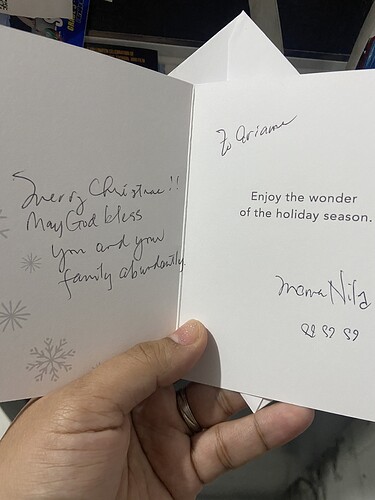 Merry Christmae!!
May God bless
you and your
family abundantly
To Ariane
Enjoy the wonder
of the holiday season.
Mama Nila